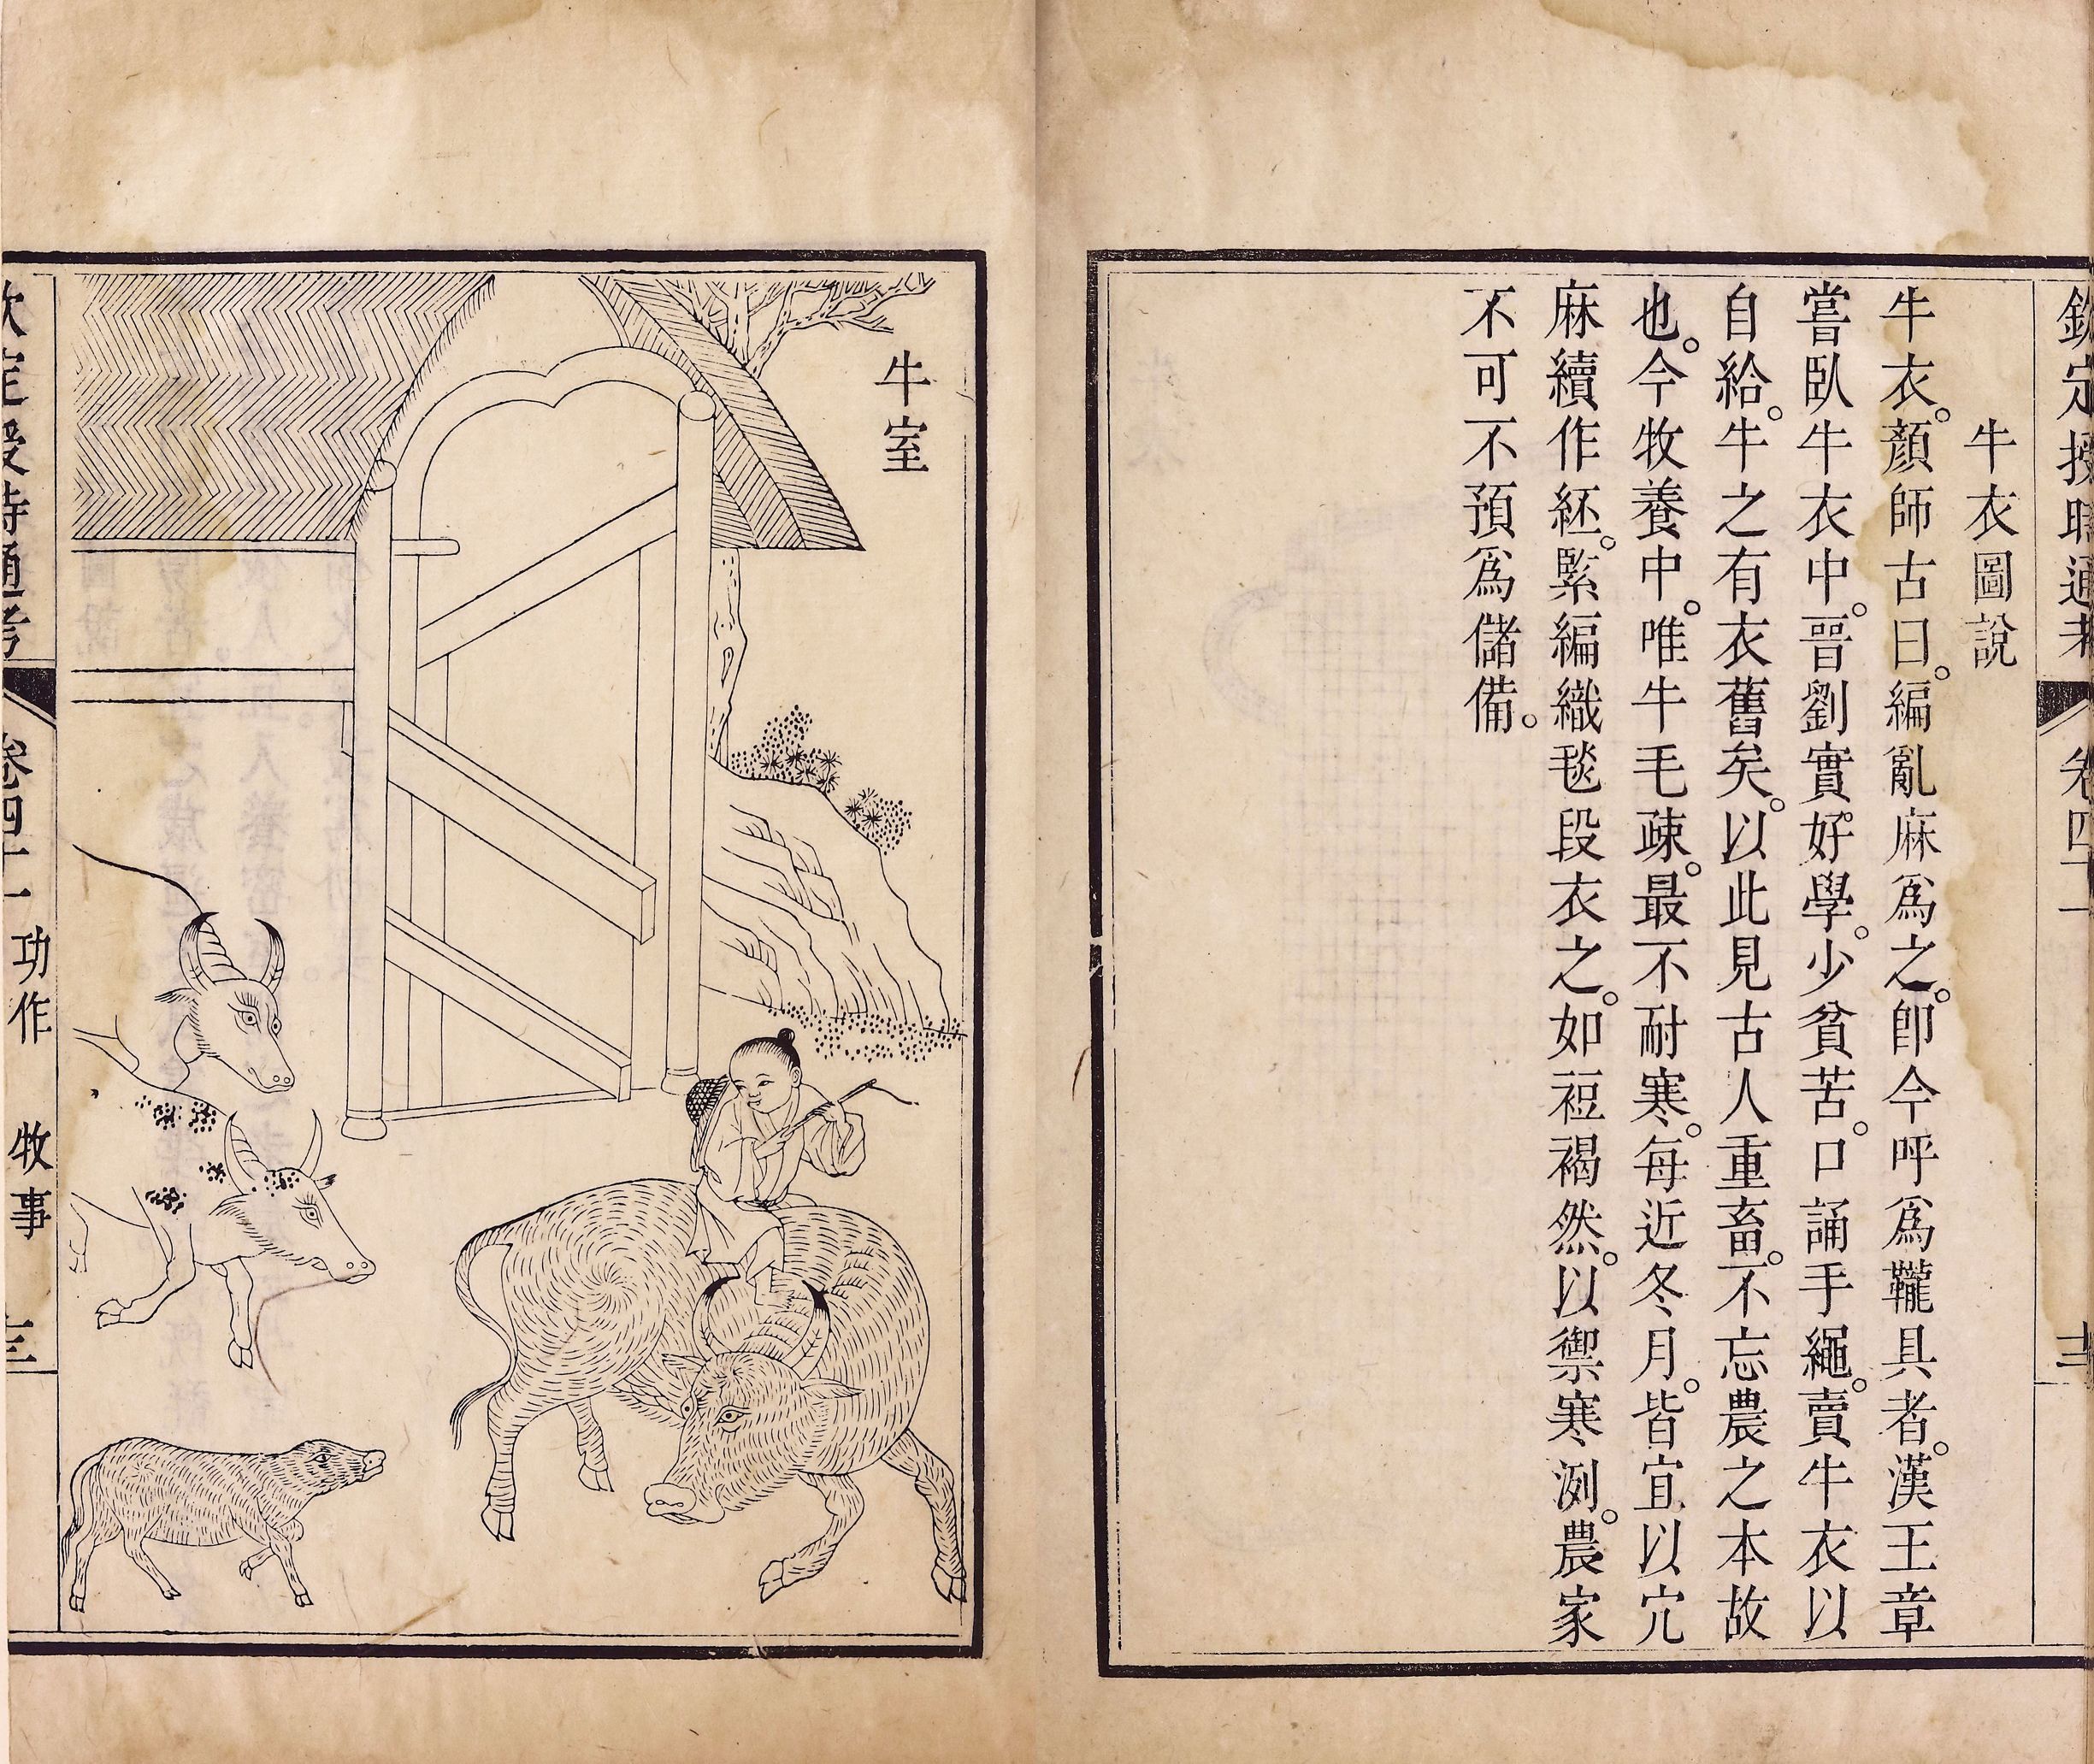 欽定授時通考 卷四十一 十二
牛衣圖說
牛衣。顏師古曰。編亂麻爲之。卽今呼爲䪊具者。漢王章
嘗臥牛衣中。晉劉實好學。少貧苦。口誦手繩。賣牛衣以
自給。牛之有衣舊矣。以此見古人重畜。不忘農之本故
也。今牧養中。唯牛毛疎。最不耐寒。每近冬月。皆宜以冗
麻續作紝。緊編織毯段衣之。如裋褐然。以禦寒冽。農家
不可不預爲儲備。
牛室
欽定授時通考 卷四十一 功作 牧事 十三